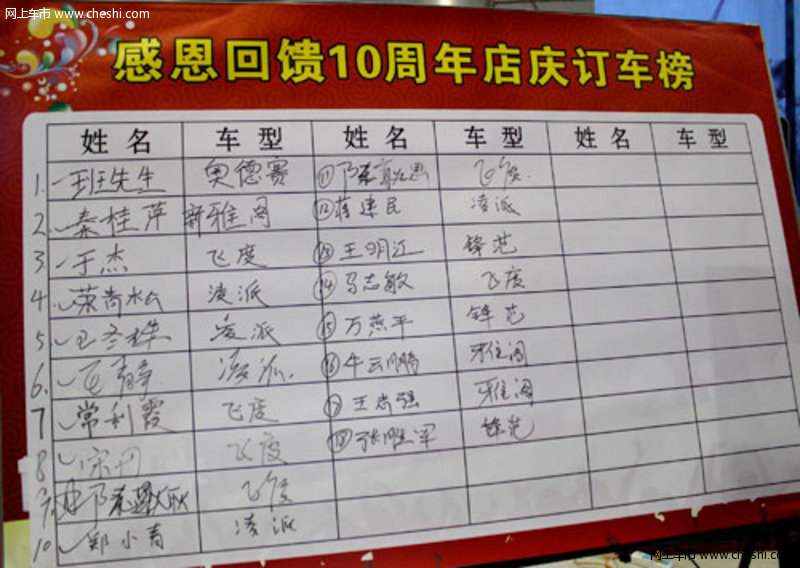 网上车市 www.cheshi.com
感恩回馈10周年店庆订车榜
姓名 车型 姓名 车型 姓名 车型
1. 班先生 奥德赛 ⑪ 飞度
2. 秦桂萍 新雅阁 ⑫ 蒋建民 凌派
3. 于杰 飞度 ⑬ 王明江 锋范
4. 荣尚松 凌派 ⑭ 马志敏 飞度
5. 凌派 ⑮ 万燕平 锋范
6. 凌派 ⑯ 牛云鹏 雅阁
7 常利霞 飞度 ⑰ 王尚强 雅阁
8 宋丹 飞度 ⑱ 张胜军 锋范
9 飞度
10 郑小青 凌派
网上车市 www.cheshi.com